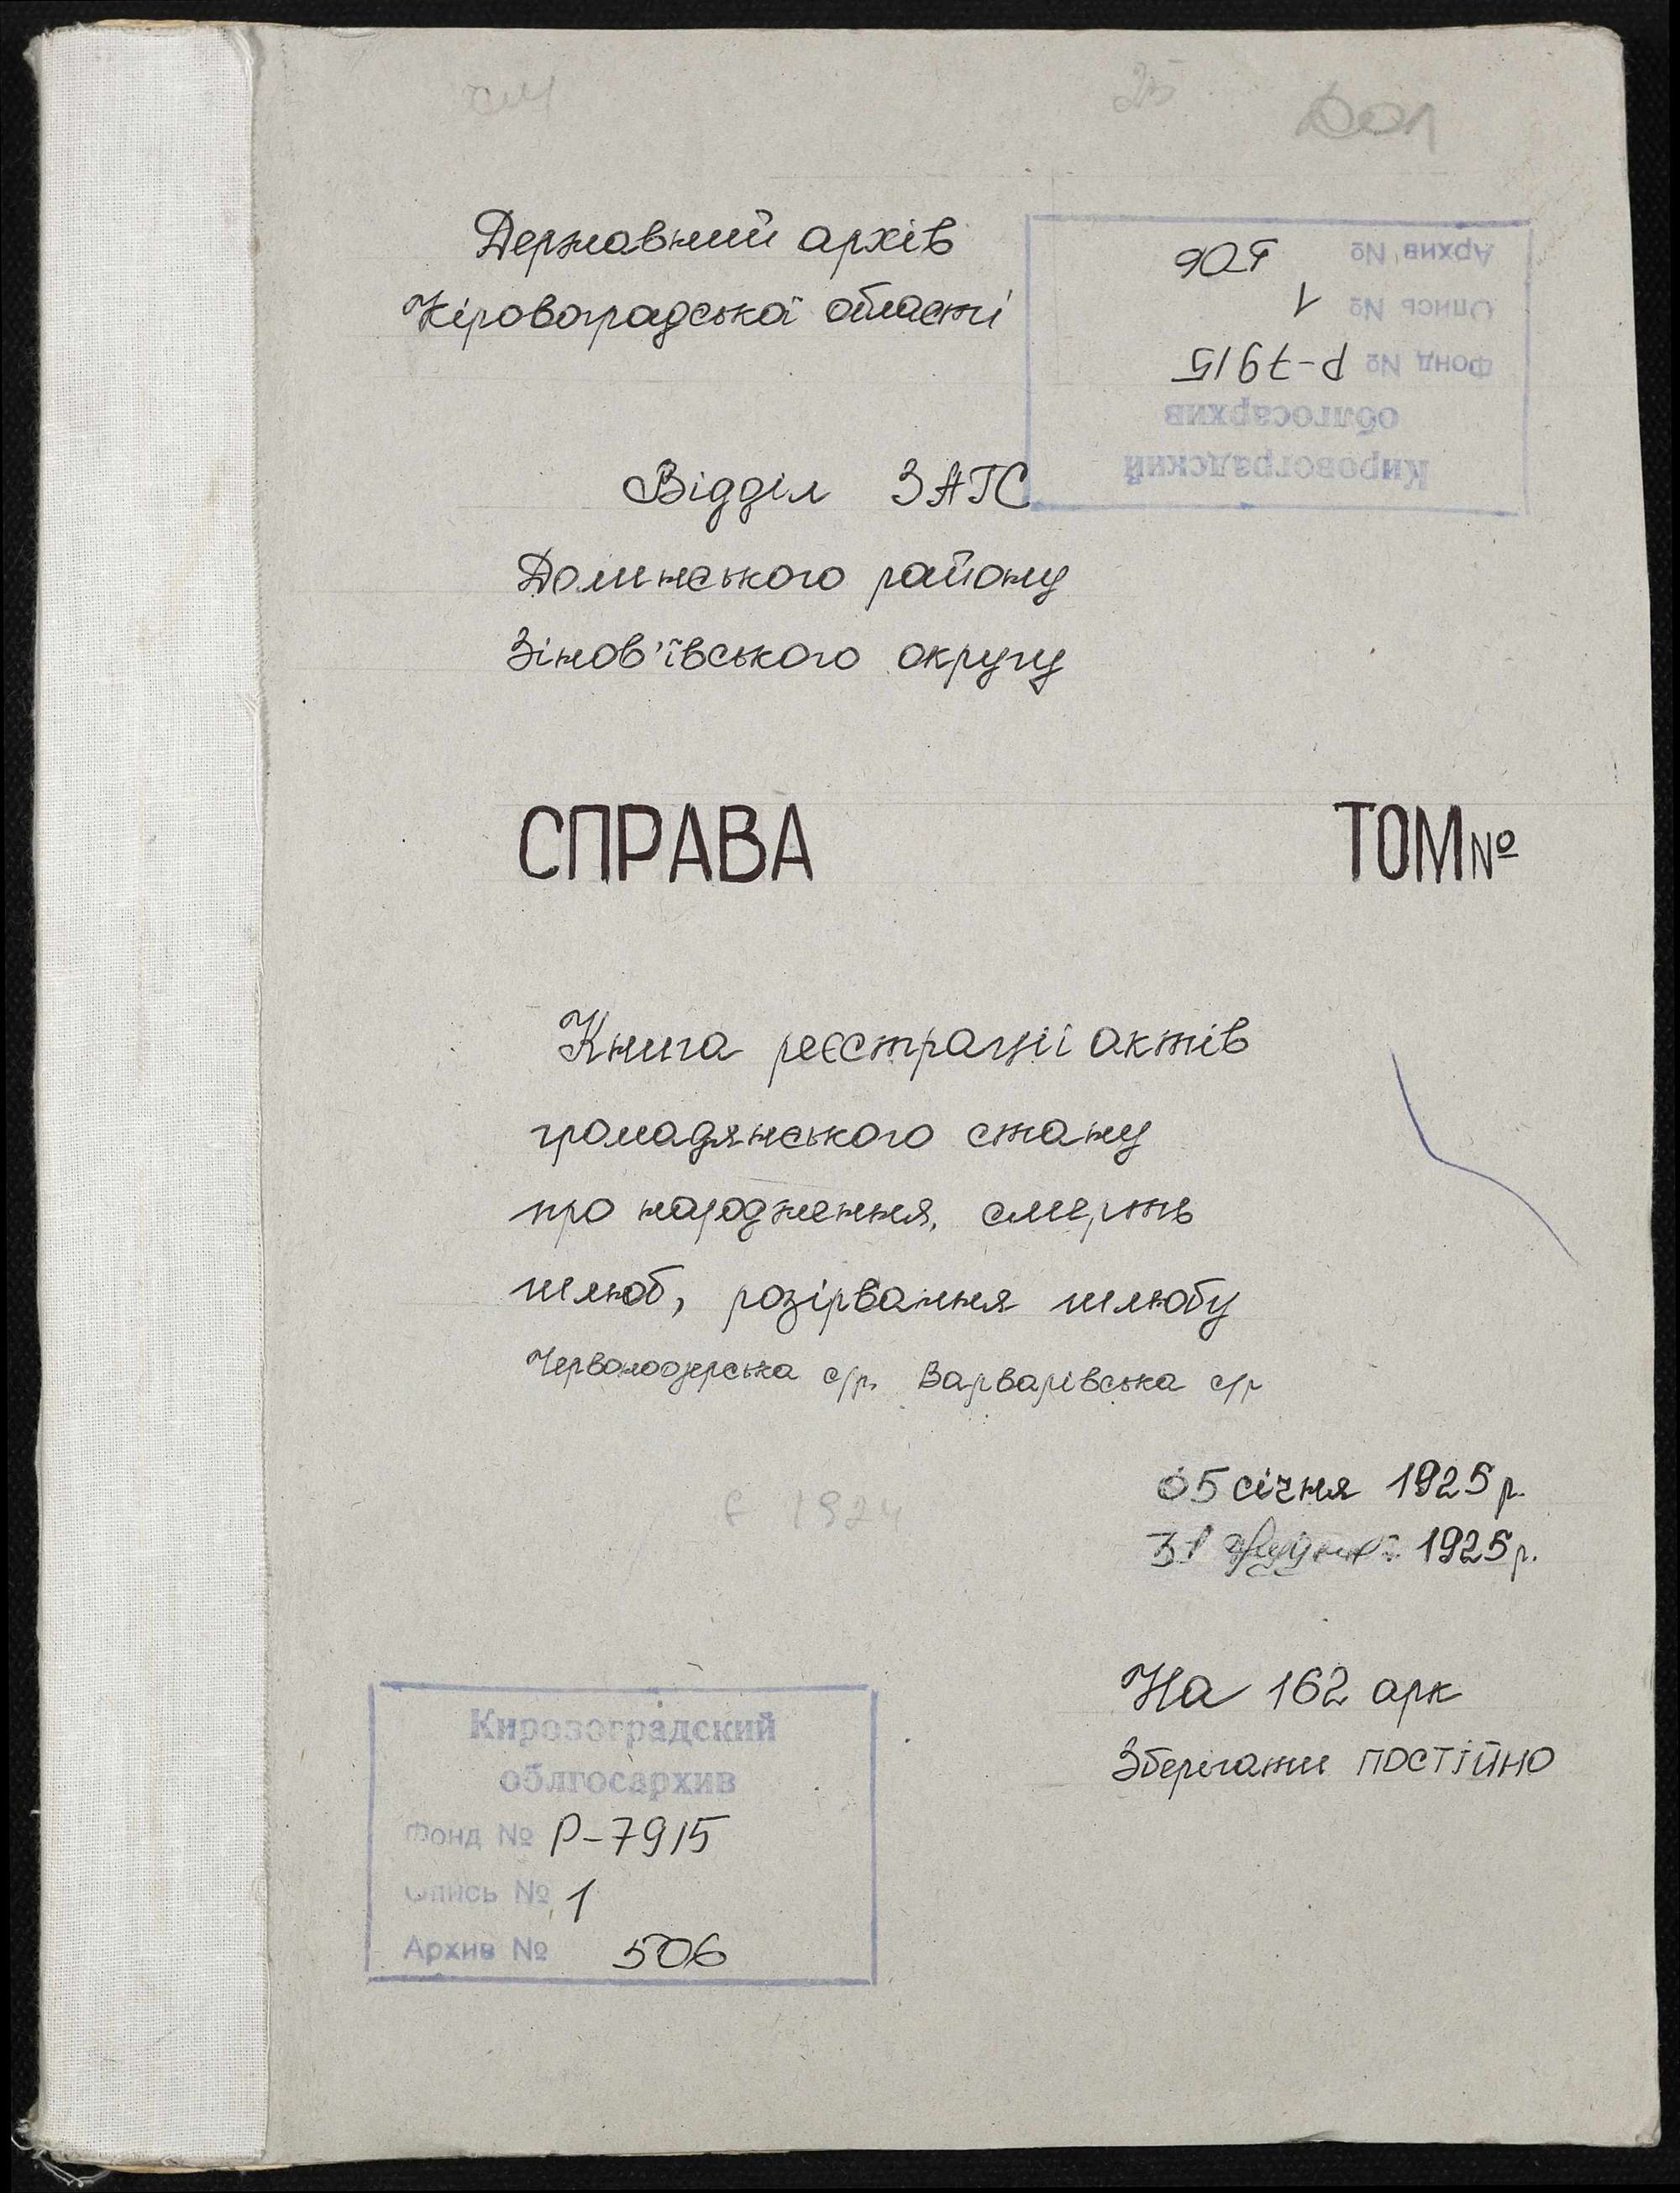 Державний архів
Кіровоградської області
Архив № 506
Опись № 1
Фонд № Р-7915
облгосархив
Кировоградский
Відділ ЗАГС
Долинського району
Зінов'ївського округу
СПРАВА ТОМ №
Книга реєстрації актів
громадянського стану
про народження, смерть
шлюб, розірвання шлюбу
Червоноозерська с/р. Варварівська с/р
05 січня 1925 р.
1924
31 грудня 1925 р.
На 162 арк
Зберігати постійно
Кировоградский
облгосархив
Фонд № Р-7915
Опись № 1
Архив № 506